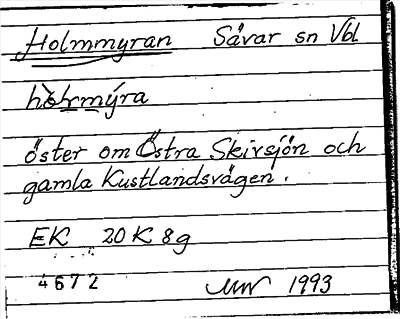 Holmmyran Sävar sn Vbl
hòḷmýra
öster om Östra Skivsjön och
gamla Kustlandsvägen.
EK 20K 8g
4672 1993